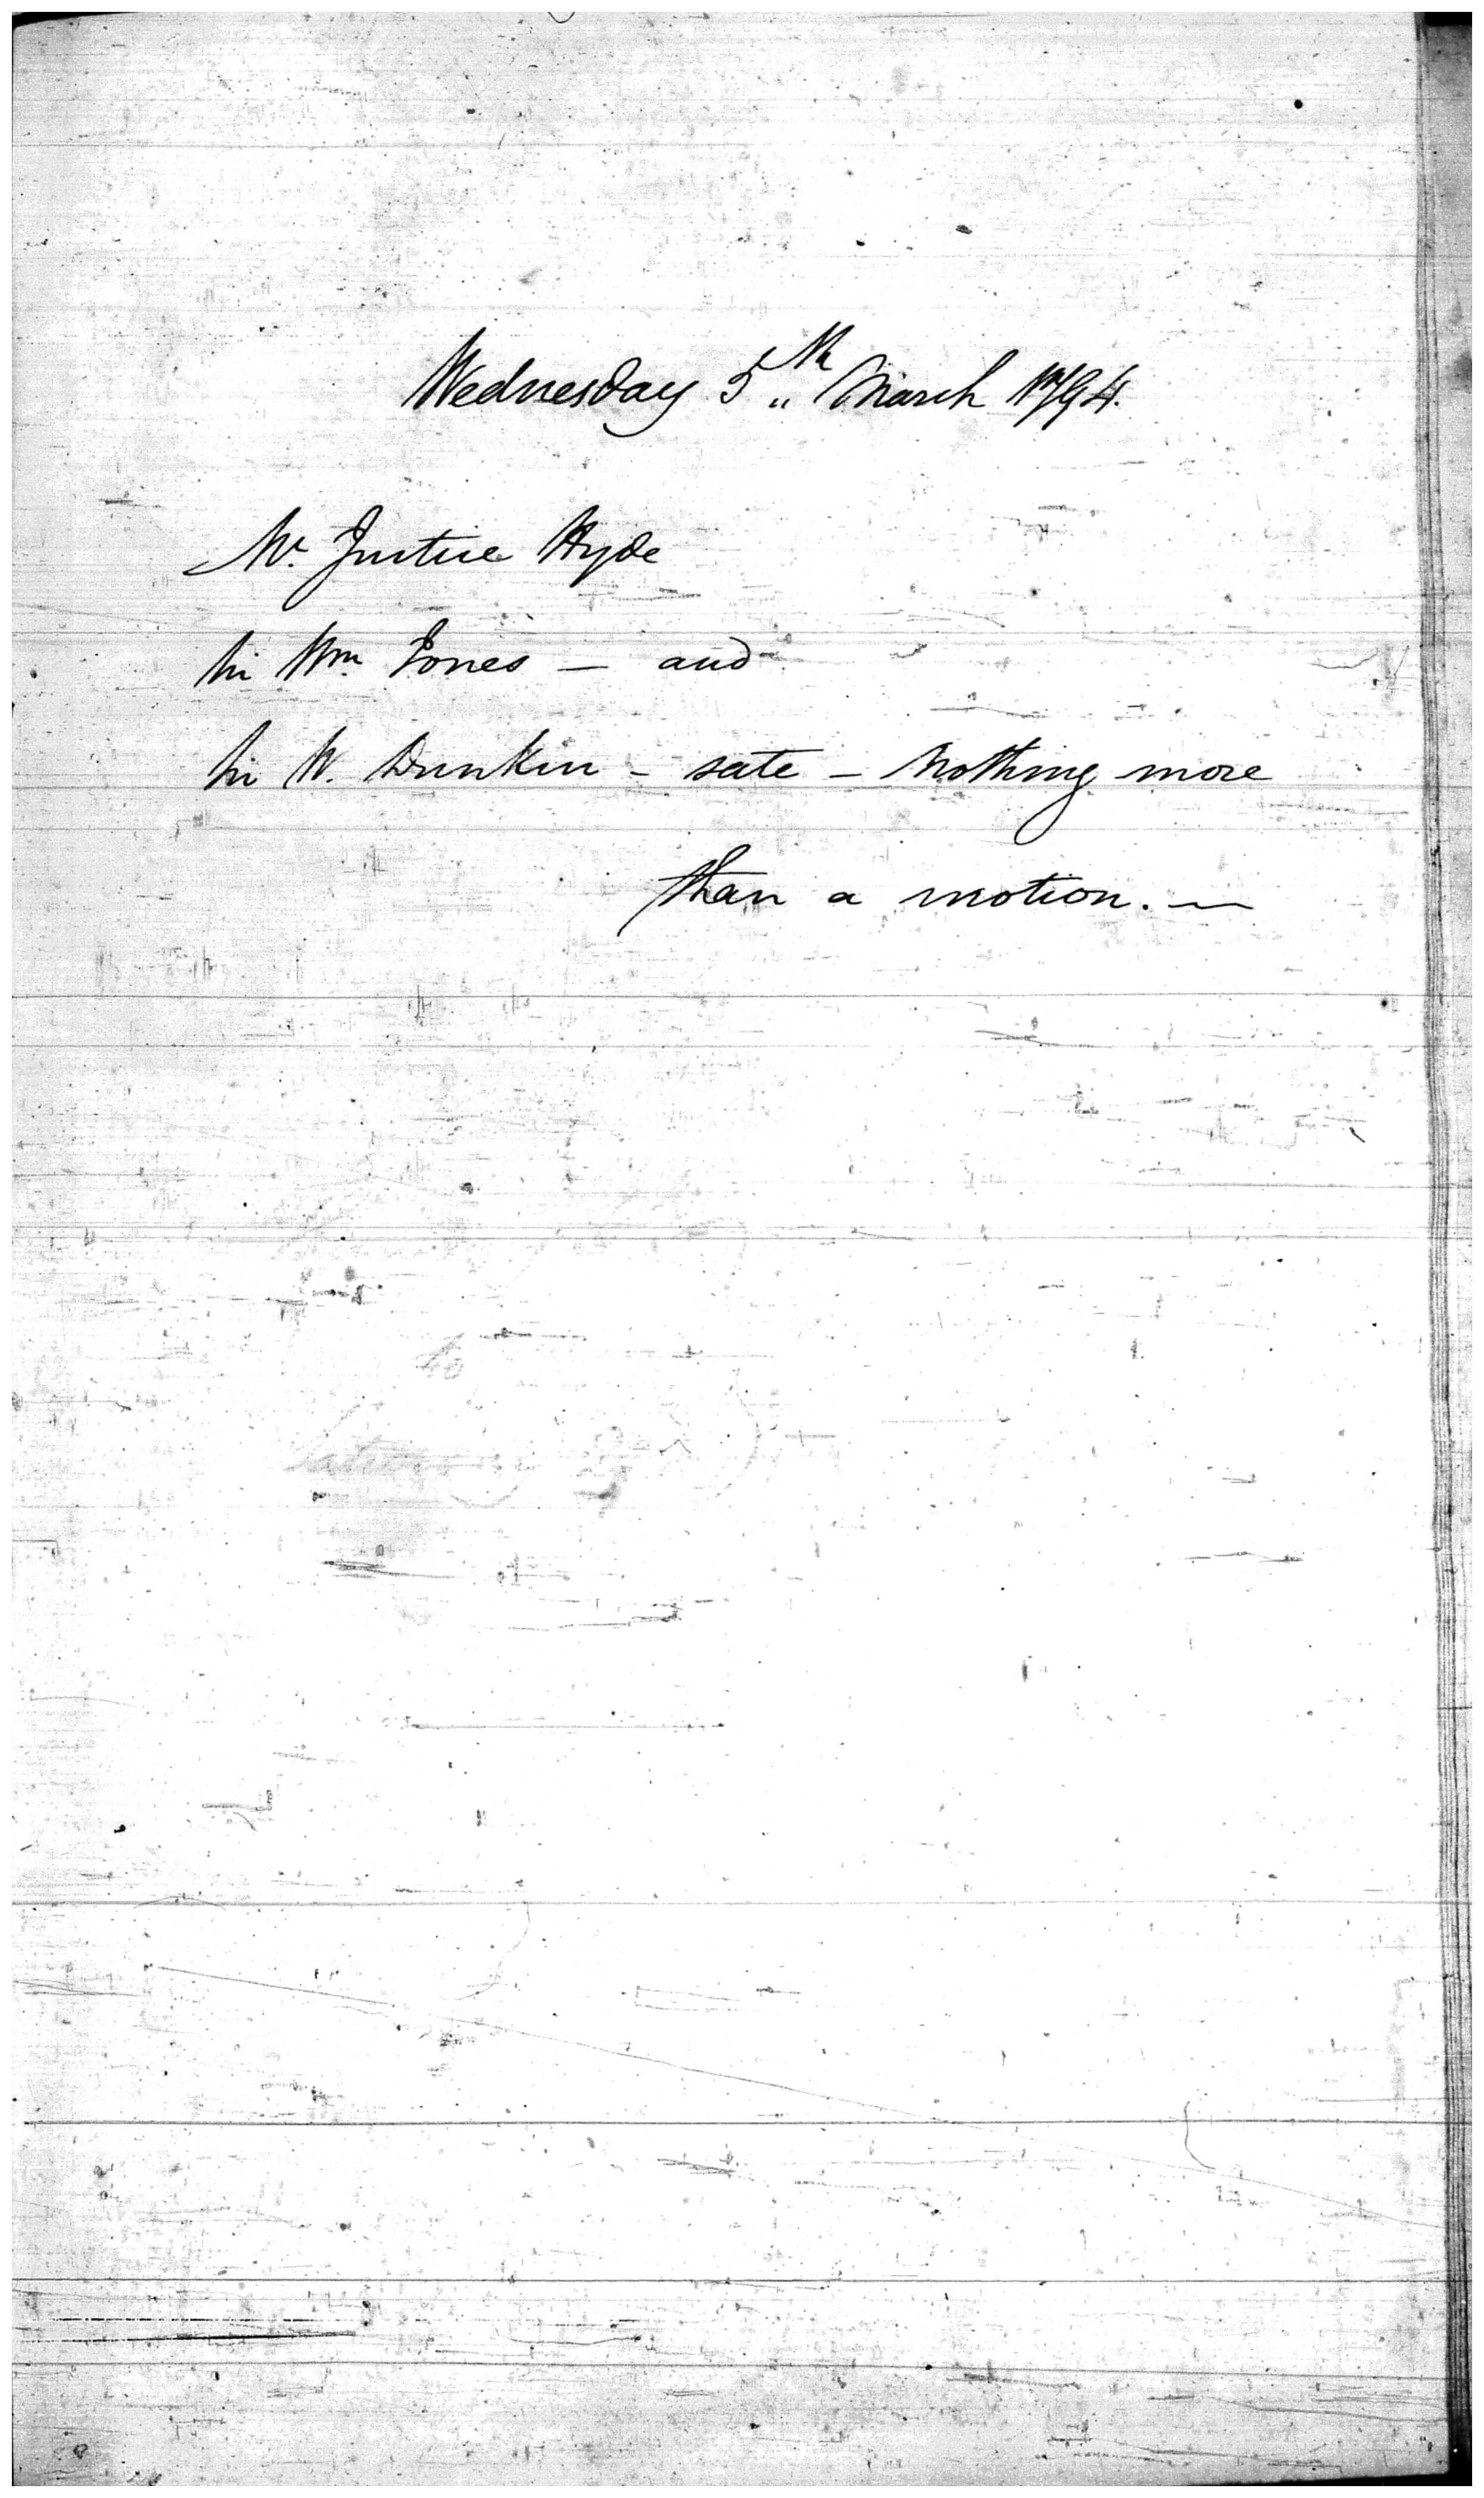 Wednesday 5th March 1794.
Mr. Justice Hyde
Sir Wm. Jones — and
Sir W. Dunkin – sate – Nothing more
than a motion. —